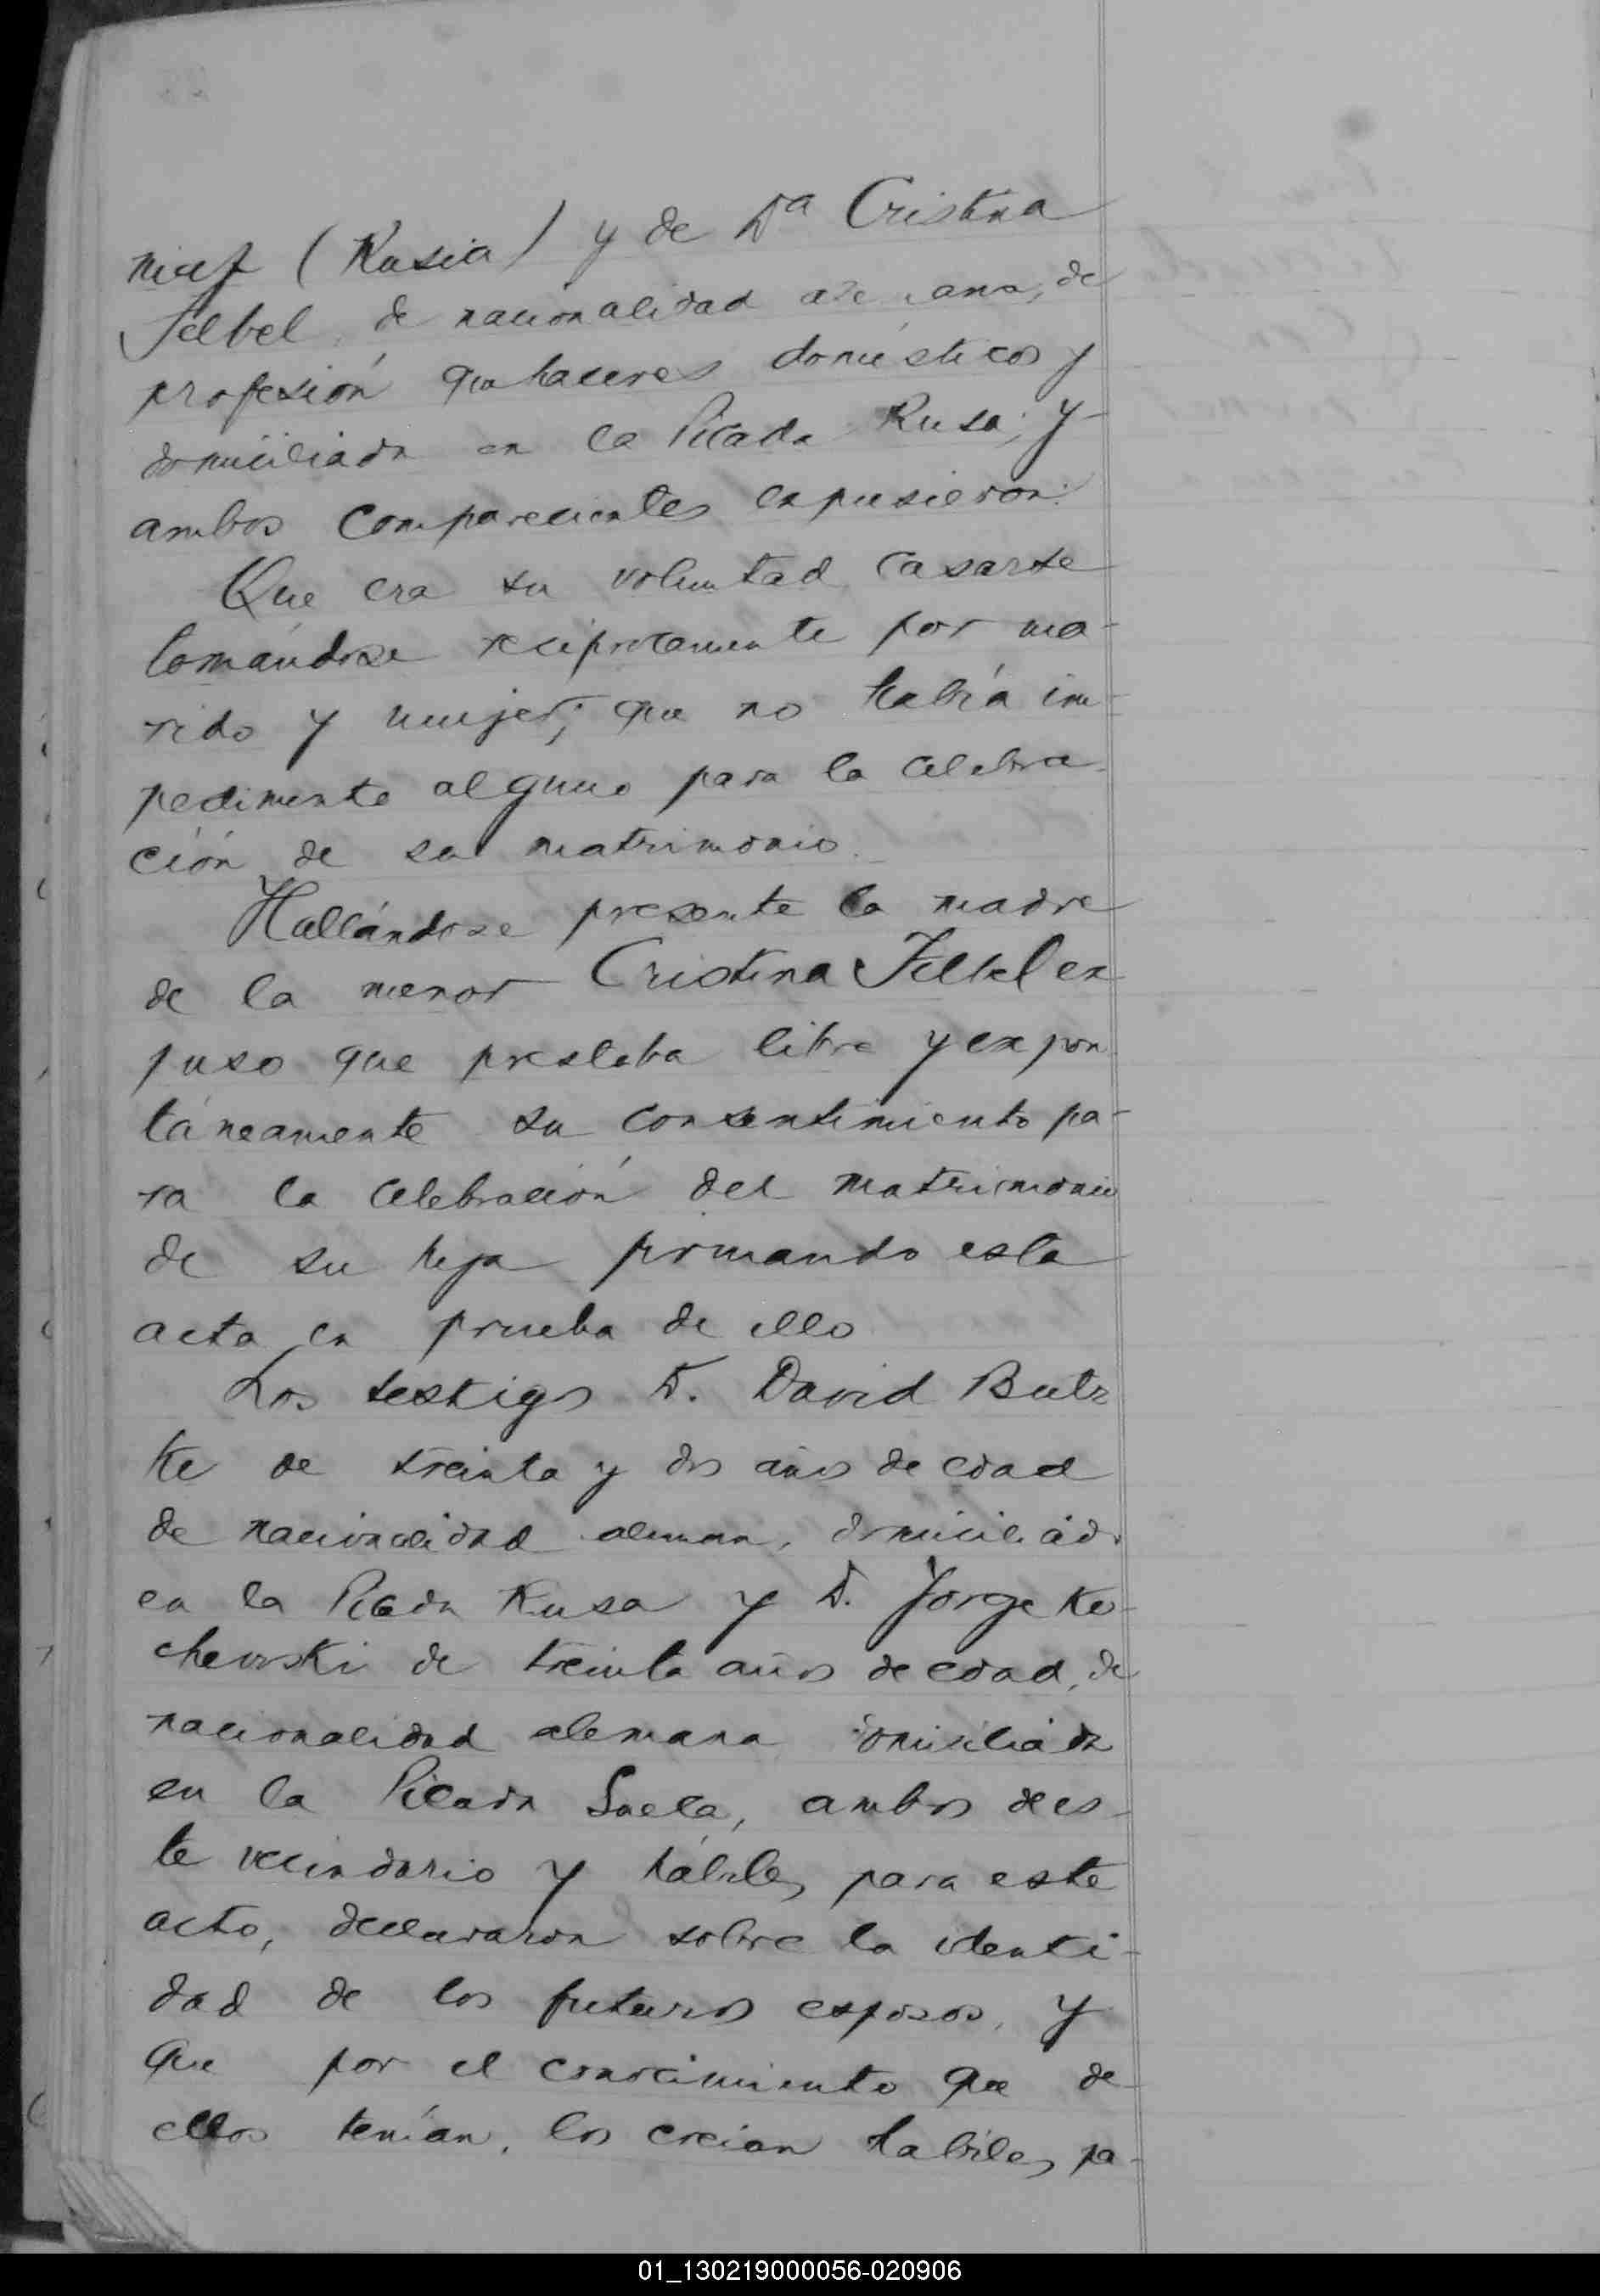 (Rusia) y de Dª Cristina
Felbel, de nacionalidad alemana, de
profesión quehaceres domésticos y
domiciliada en la Picada Rusa; y
ambos comparecientes expusieron:
Que era su voluntad casarse
tomándose reciprocamente por ma-
rido y mujer; que no había im-
pedimento alguno para la celebra-
ción de su matrimonio.
Hallándose presente la madre
de la menor Cristina Felbel ex
puso que prestaba libre y expon
táneamente su consentimiento pa-
ra la celebración del matrimonio
de su hija firmando esta
acta en prueba de ello
Los testigos D. David Butz
ke de treinta y dos años de edad
de nacionalidad alemana, domiciliado
en la Picada Rusa y D. Jorge Ko-
chewski de treinta años de edad, de
nacionalidad alemana domiciliado
en la Picada Suela, ambos de es-
te vecindario y hábiles para este
acto, declararon sobre la identi-
dad de los futuros esposos, y
que por el conocimiento que de
ellos tenían, los creían habiles pa-
01_130219000056-020906